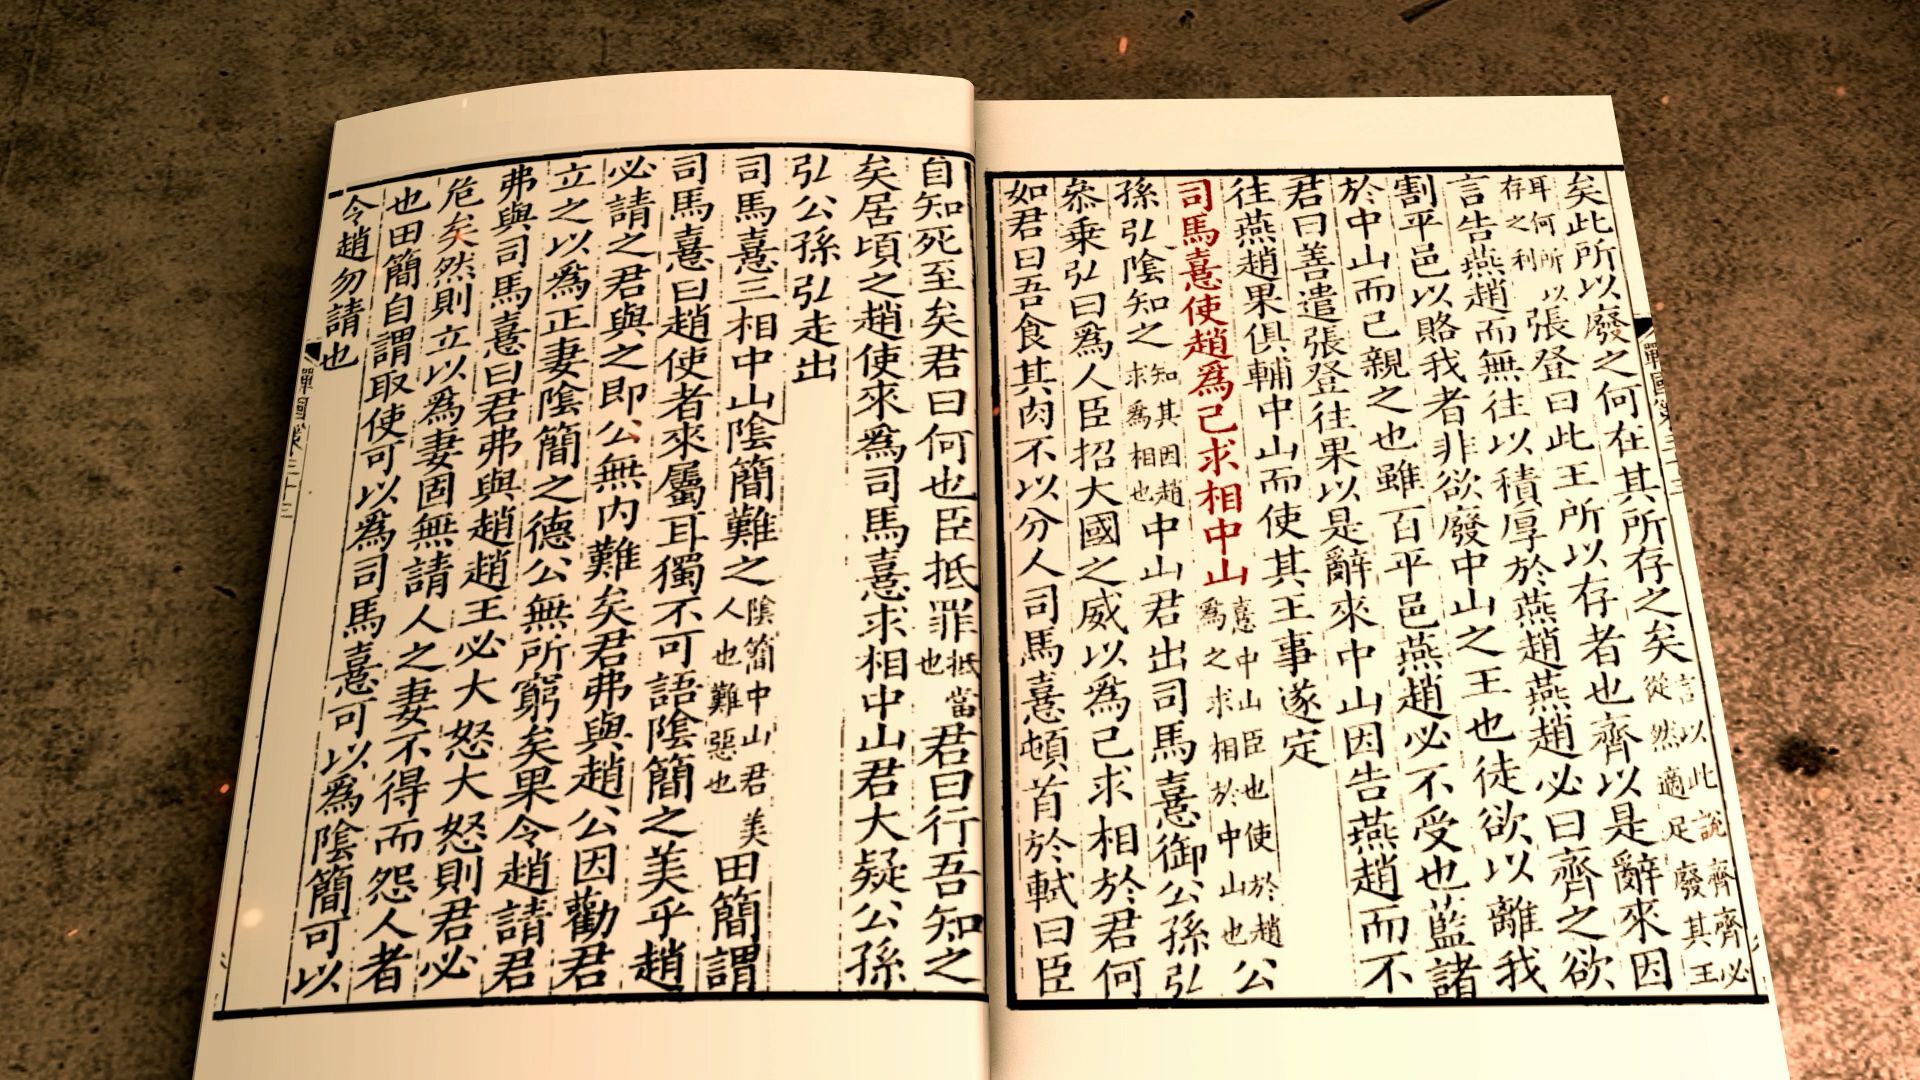 戰國策三十三
矣此所以廢之何在其所存之矣言以此說齊齊必從然適足廢其王
耳何所以存之利張登曰此王所以存者也齊以是辭來因
言告燕趙而無往以積厚於燕趙燕趙必曰齊之欲
割平邑以賂我者非欲廢中山之王也徒欲以離我
於中山而己親之也雖百平邑燕趙必不受也藍諸
君曰善遣張登往果以是辭來中山因告燕趙而不
往燕趙果俱輔中山而使其王事遂定
司馬憙使趙爲己求相中山憙中山臣也使於趙爲之求相於中山也公
孫弘陰知之知其因趙求爲相也中山君出司馬憙御公孫弘
叅乗弘曰爲人臣招大國之威以爲己求相於君何
如君曰吾食其肉不以分人司馬憙頓首於軾曰臣
自知死至矣君曰何也臣抵罪抵當也君曰行吾知之
矣居頃之趙使來爲司馬憙求相中山君大疑公孫
弘公孫弘走出
司馬憙三相中山陰簡難之陰簡中山君美人也難惡也田簡謂
司馬憙曰趙使者來屬耳獨不可語陰簡之美乎趙
必請之君與之即公無内難矣君弗與趙公因勸君
立之以爲正妻陰簡之德公無所窮矣果令趙請君
弗與司馬憙曰君弗與趙趙王必大怒大怒則君必
危矣然則立以爲妻固無請人之妻不得而怨人者
也田簡自謂取使可以爲司馬憙可以爲陰簡可以
令趙勿請也
戰國策三十三